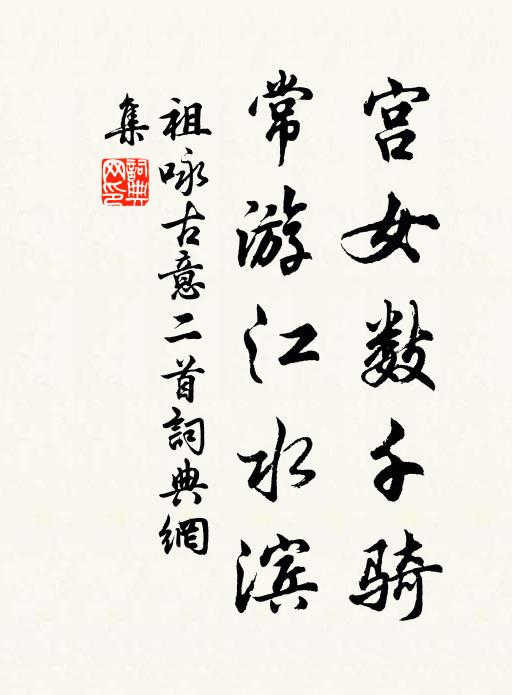 宫女数千骑
常游江水滨
祖咏古意二首詞典網
集
詞典
网印